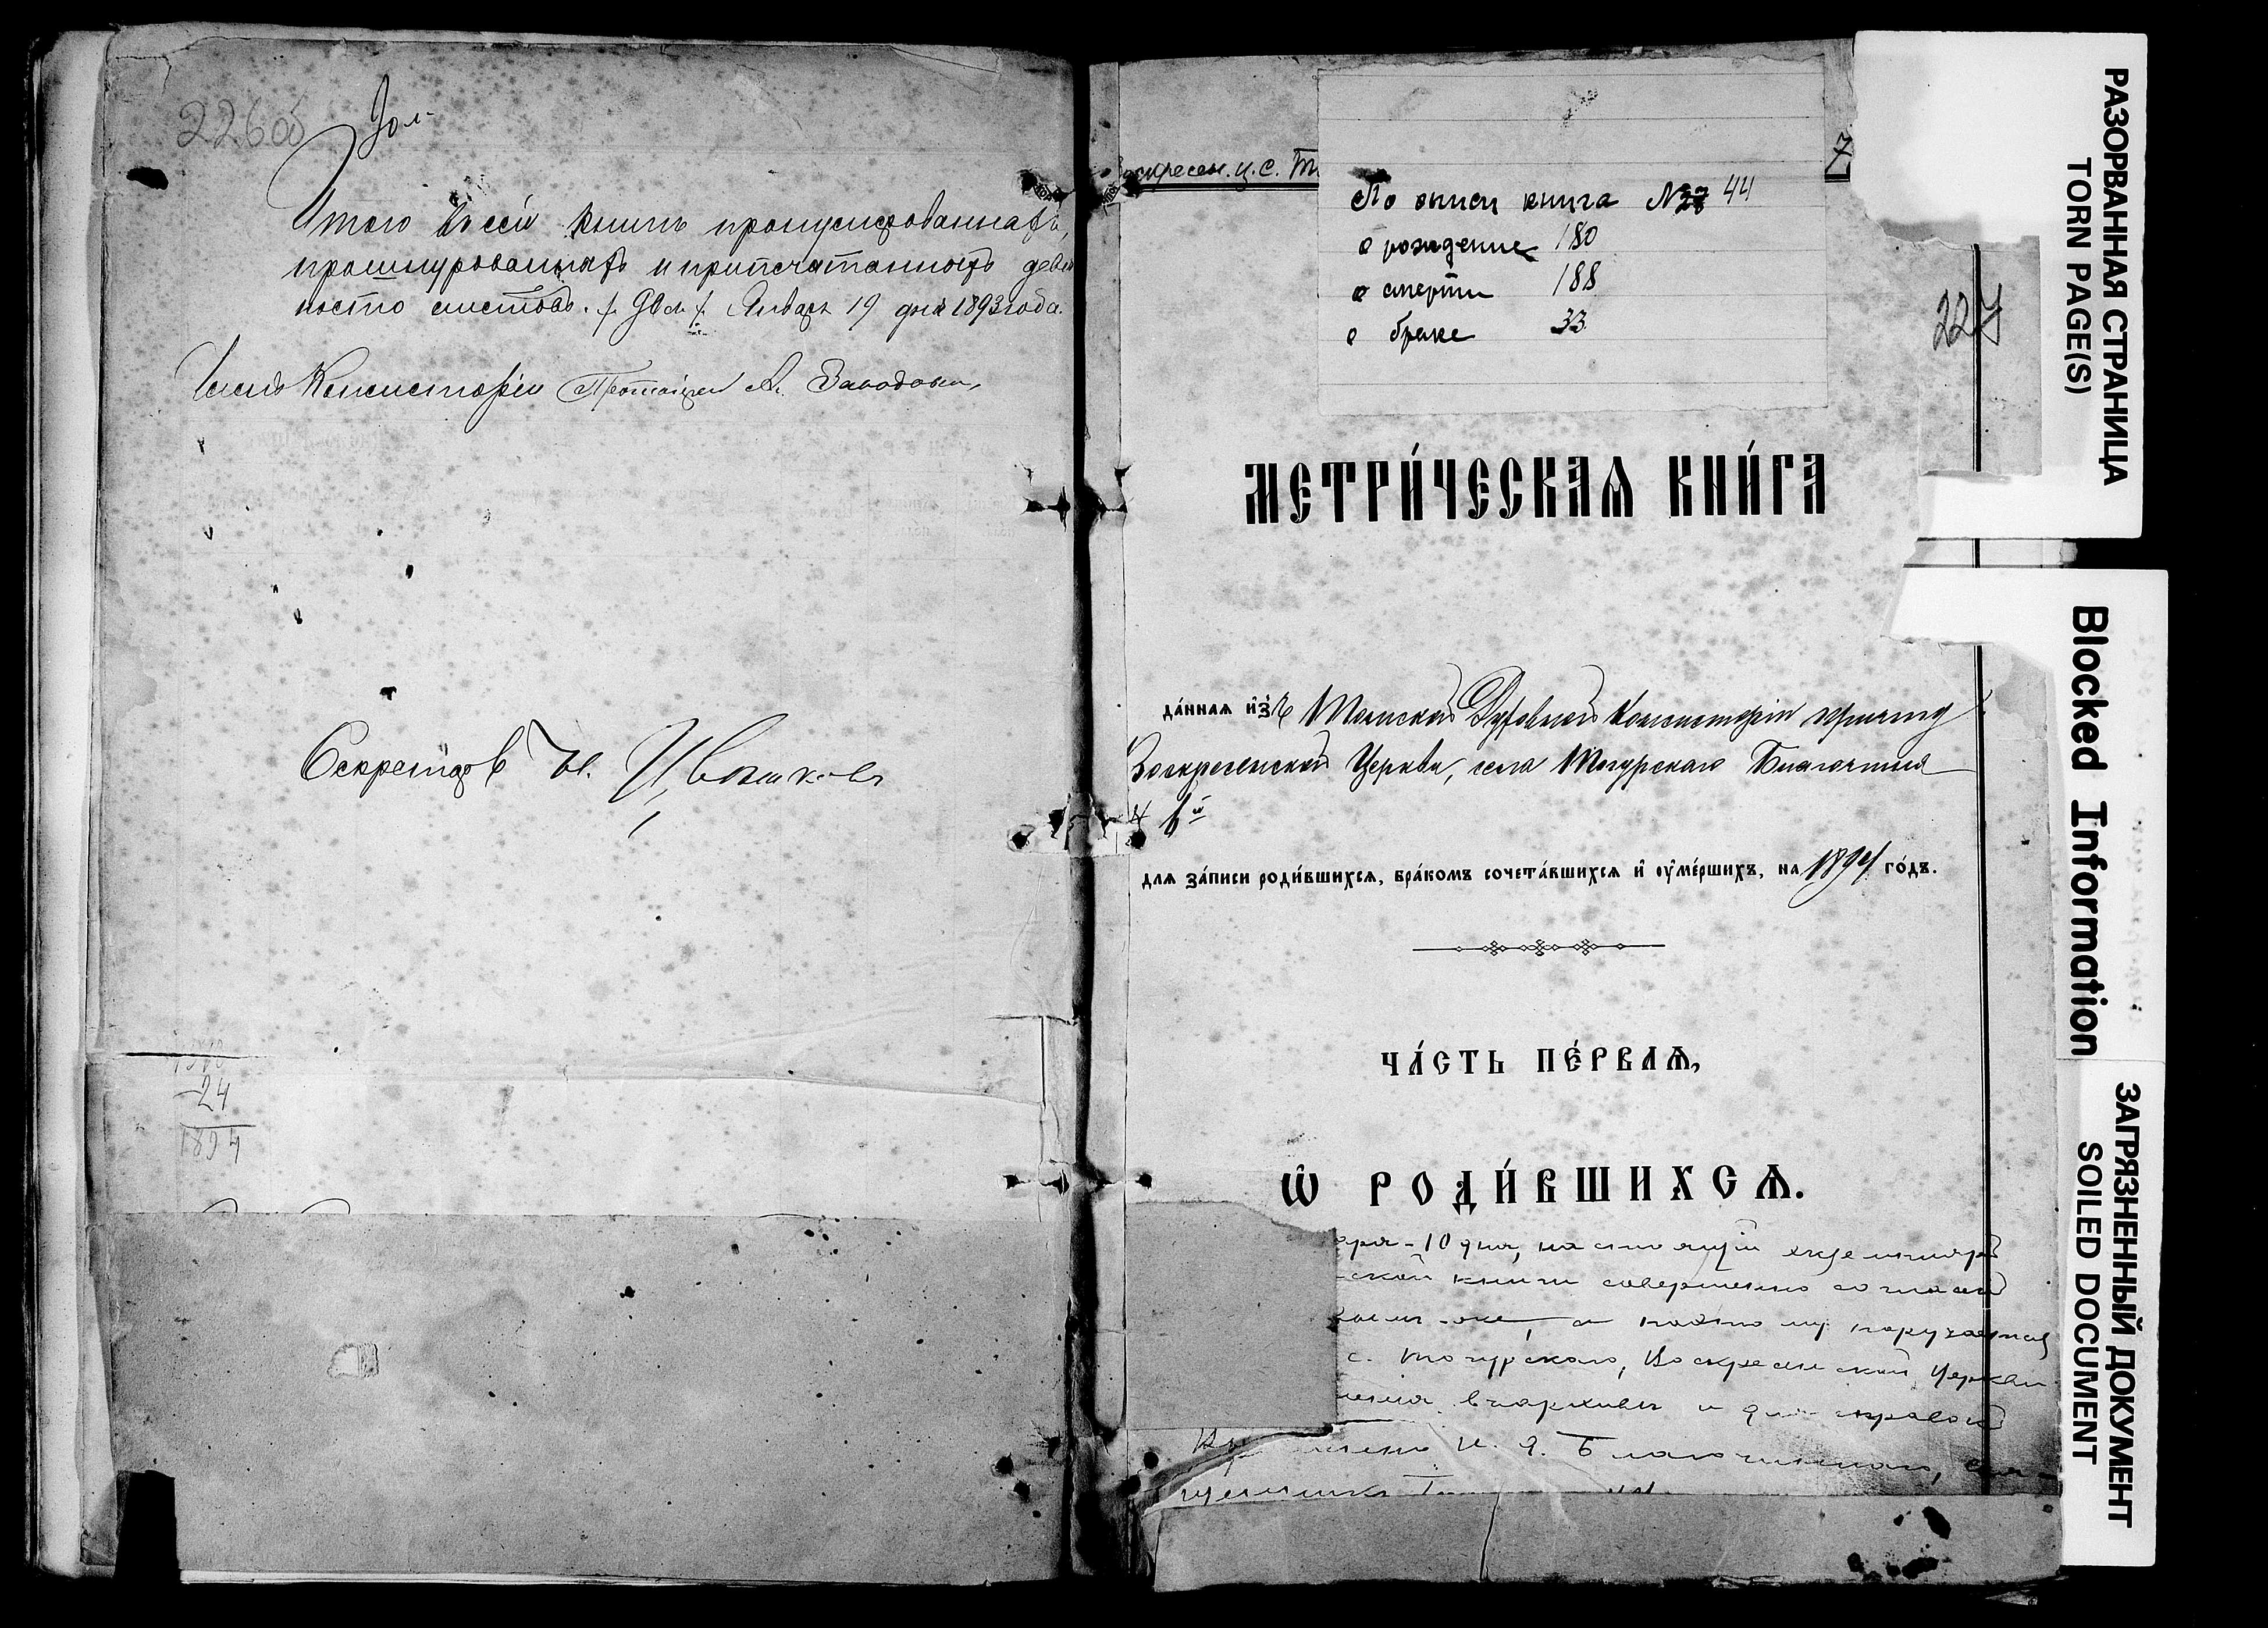 226об
Итого въ сей книгѣ пронумерованныхъ,
прошнурованныхъ и припечатанныхъ девя
носто листовъ. Января 19 дня 1893 года.
Членъ Консисторіи Протоіерей А. Заводовскі
Секретарь И. Цвѣтковъ
24
1894
Воскресен. ц. с. Т
7
По описи книга № 44
о рождение 180
о смерти 188
о браке 33
227
МЕТРИ́ЧЕСКАѦ КНИ́ГА
да́ннаѧ и҆зъ Томской Духовной Консисторіи причту
Воскресенской Церкви, села Тогурскаго Благочинія
№ 6й
длѧ за́писи роди́вшихсѧ, бра́комъ сочета́вшихсѧ и҆ ѹ҆ме́ршихъ, на 1894 го́дъ.
ЧА́СТЬ ПЕ́РВАѦ,
Ѡ҆ РОДИ́ВШИХСѦ.
аря - 10 дня, настоящій экземпляръ
ской книги совершенно согласенъ
а потому поручается
с. Тогурскаго, Воскресенской Церкви
въ архивъ и для справокъ
И. Д. Благочиннаго, свя-
щенникъ
РАЗОРВАННАЯ СТРАНИЦА
TORN PAGE(S)
Blocked Information
ЗАГРЯЗНЕННЫЙ ДОКУМЕНТ
SOILED DOCUMENT